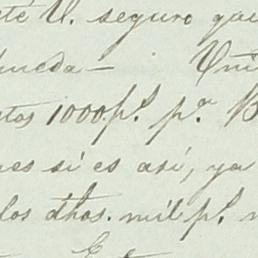 té V. seguro que
pueda — Uni
tos 1000 p.s p.a B
es si es así, ya
los dhos. mil p.s